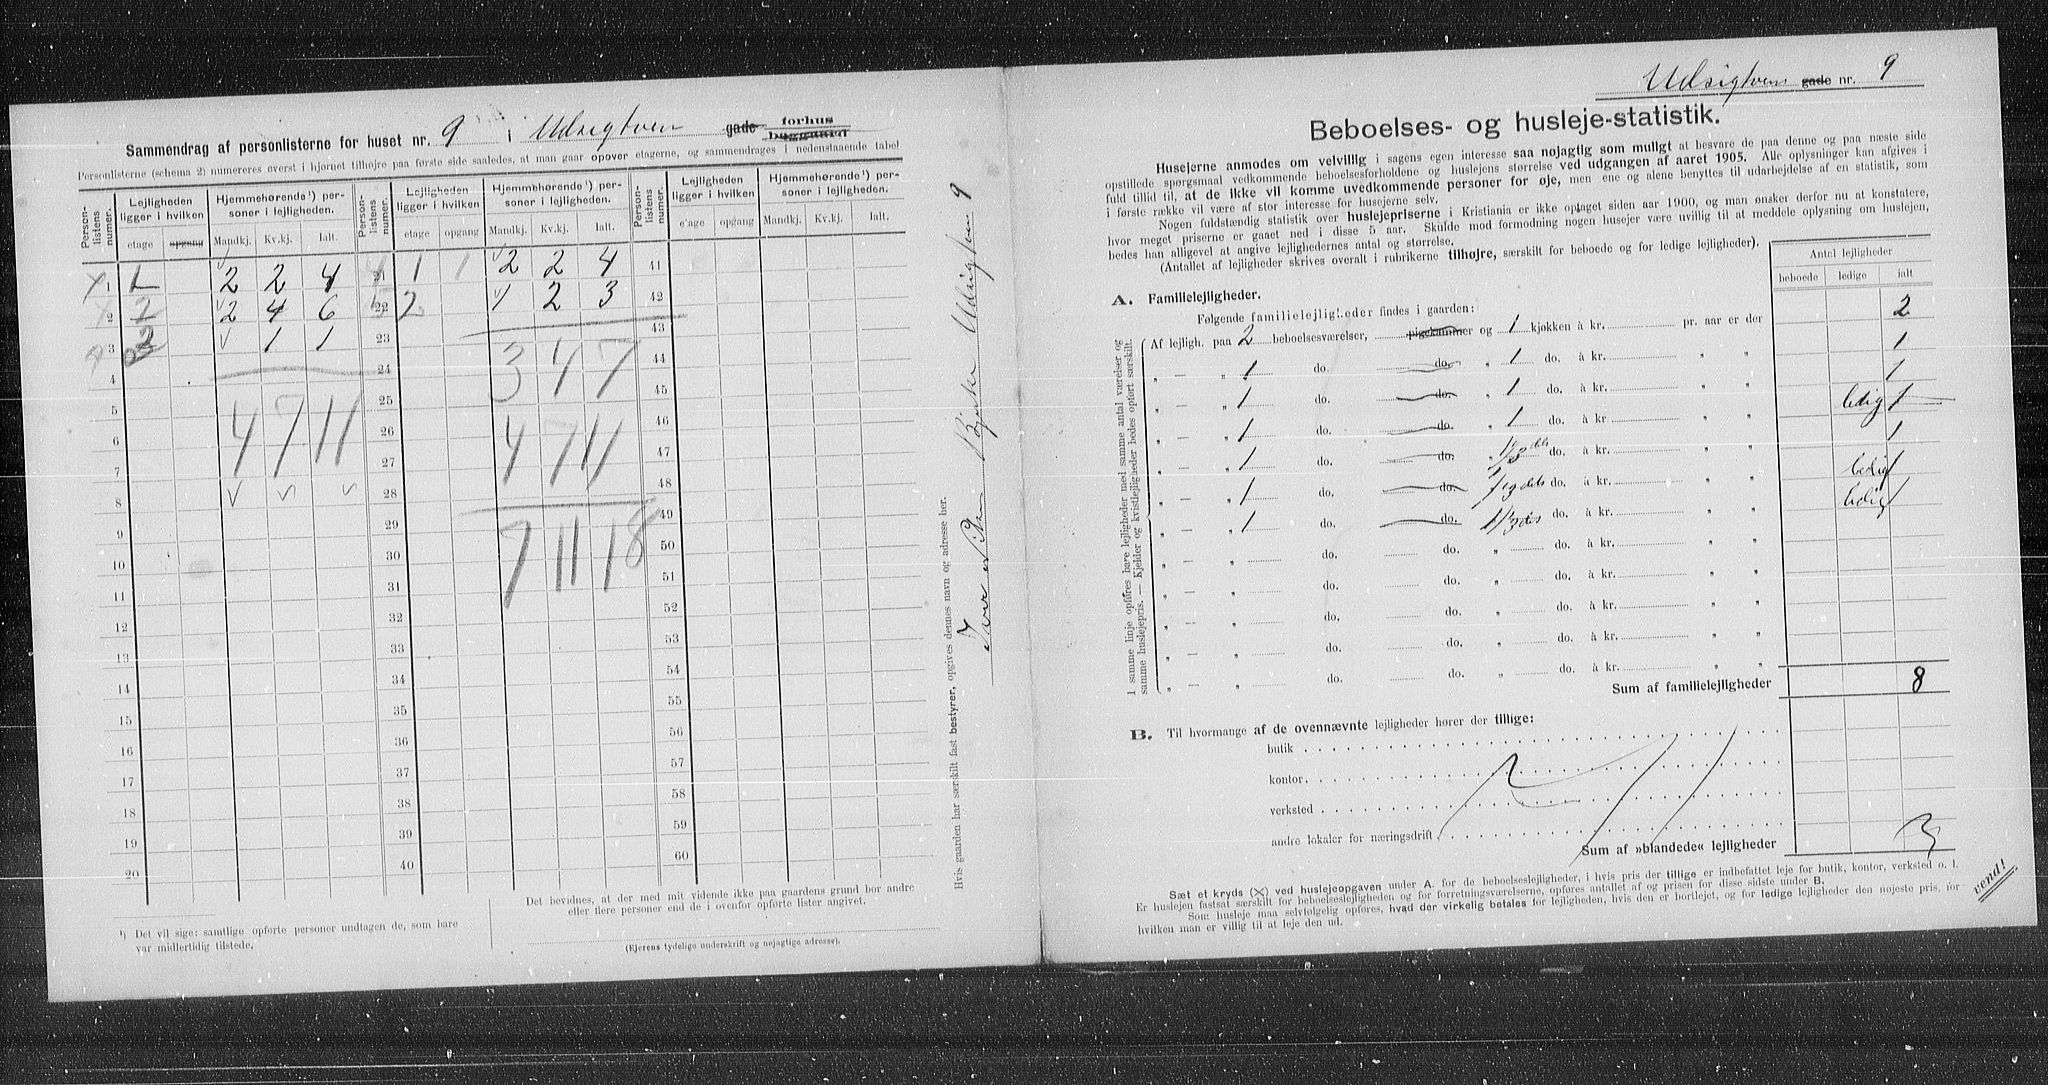 Sammendrag af personlisterne for huset nr. 9 i Udsigtven gade forhus baggaard
Personlisterne (schema 2) numereres øverst i hjørnet tilhøjre paa første side saaledes, at man gaar opover etagerne, og sammendrages i nedenstaaende tabel
Person-listens numer. Lejligheden ligger i hvilken Hjemmehørende¹) personer i lejligheden. Person-listens numer. Lejligheden ligger i hvilken Hjemmehørende¹) personer i lejligheden. Person-listens numer. Lejligheden ligger i hvilken Hjemmehørende¹) personer i lejligheden.
etage opgang Mandkj. Kv.kj. Ialt. etage opgang Mandkj. Kv.kj. Ialt. etage opgang Mandkj. Kv.kj. Ialt.
1 1 2 2 4 21 1 1 2 2 4 41
2 2 2 4 6 22 2 1 2 3 42
3 2 1 1 23 43
4 24 3 4 7 44
5 4 7 11 25 45
6 26 4 7 11 46
7 27 47
8 28 48
9 29 7 11 18 49
10 30 50
11 31 51
12 32 52
13 33 53
14 34 54
15 35 55
16 36 56
17 37 57
18 38 58
19 39 59
20 40 60
¹) Det vil sige: samtlige opførte personer undtagen de, som bare
var midlertidig tilstede.
Det bevidnes, at der med mit vidende ikke paa gaardens grund bor andre
eller flere personer end de i ovenfor opførte lister angivet.
(Ejerens tydelige underskrift og nøjagtige adresse).
Hvis gaarden har særskilt fast bestyrer, opgives dennes navn og adresse her.
Udsigtven 9
Udsigtven gade nr. 9
Beboelses- og husleje-statistik.
Husejerne anmodes om velvillig i sagens egen interesse saa nøjagtig som muligt at besvare de paa denne og paa næste side
opstillede spørgsmaal vedkommende beboelsesforholdene og huslejens størrelse ved udgangen af aaret 1905. Alle oplysninger kan afgives i
fuld tillid til, at de ikke vil komme uvedkommende personer for øje, men ene og alene benyttes til udarbejdelse af en statistik, som
i første række vil være af stor interesse for husejerne selv.
Nogen fuldstændig statistik over huslejepriserne i Kristiania er ikke optaget siden aar 1900, og man ønsker derfor nu at konstatere,
hvor meget priserne er gaaet ned i disse 5 aar. Skulde mod formodning nogen husejer være uvillig til at meddele oplysning om huslejen,
bedes han alligevel at angive lejlighedernes antal og størrelse.
(Antallet af lejligheder skrives overalt i rubrikerne tilhøjre, særskilt for beboede og for ledige lejligheder).
Antal lejligheder
beboede ledige ialt
A. Familielejligheder.
Følgende familielejligheder findes i gaarden:
I samme linje opføres bare lejligheder med samme antal værelser og
samme huslejepris. — Kjelder og kvistlejligheder bedes opført særskilt.
Af lejligh. paa 2 beboelsesværelser, pigekammer og 1 kjøkken à kr. pr. aar er der 2
„ — „ 1 do. do. „ 1 do. à kr. „ „ 1
„ — „ 1 do. do. „ 1 do. à kr. „ „ 1
„ — „ 1 do. do. „ 1 do. à kr. „ „ ledig 1
„ — „ 1 do. do. „ 1/3 dels do. à kr. „ „ 1
„ — „ 1 do. do. „ 1/3 dels do. à kr. „ „ ledig 1
„ — „ 1 do. do. „ 1/3 dels do. à kr. „ „ ledig 1
„ — „ do. do. „ do. à kr. „ „
„ — „ do. do. „ do. à kr. „ „
„ — „ do. do. „ do. à kr. „ „
„ — „ do. do. „ do. à kr. „ „
„ — „ do. do. „ do. à kr. „ „
Sum af familielejligheder 8
B. Til hvormange af de ovennævnte lejligheder hører der tillige:
butik
kontor
verksted
andre lokaler for næringsdrift
Sum af »blandede« lejligheder
Sæt et kryds (X) ved huslejeopgaven under A. for de beboelseslejligheder, i hvis pris der tillige er indbefattet leje for butik, kontor, verksted o. l.
Er huslejen fastsat særskilt for beboelseslejligheden og for forretningsværelserne, opføres antallet af og prisen for disse sidste under B.
Som husleje maa selvfølgelig opføres, hvad der virkelig betales for lejligheden, hvis den er bortlejet, og for ledige lejligheder den nøjeste pris, for
hvilken man er villig til at leje den ud.
vend!